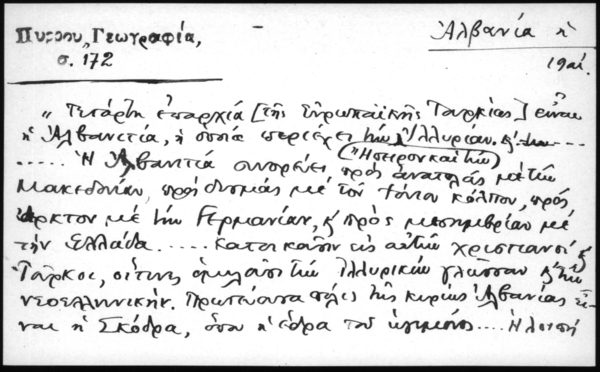 Πύρρου, Γεωγραφία,
σ. 172
Ἀλβανία ἡ
19αἰ.
„ Τετάρτη ἐπαρχία [τῆς Εὐρωπαϊκῆς Τουρκίας] εἶναι
ἡ Ἀλβανιτία, ἡ ὁποία περιέχει τὴν Ἰλλυρίαν κ' τὴν ....
(Ἤπειρον καὶ τὴν)
..... Ἡ Ἀλβανιτία συνορεύει πρὸς ἀνατολὰς μὲ τὴν
Μακεδονίαν, πρὸς δυσμὰς μὲ τὸν Ἰόνιον κόλπον, πρὸς
ἄρκτον μὲ τὴν Γερμανίαν, κ' πρὸς μεσημβρίαν μὲ
τὴν Ἑλλάδα ..... κατοικοῦσιν εἰς αὐτὴν χριστιανοὶ κ'
Τοῦρκοι, οἵτινες ὁμιλοῦσι τὴν Ἰλλυρικὴν γλῶσσαν κ' τὴν
νεοελληνικήν. Πρωτεύουσα πόλις τῆς κυρίως Ἀλβανίας εἶ-
ναι ἡ Σκόδρα, ὅπου ἡ ἕδρα τοῦ ἡγεμόνος .... Ἡ λοιπὴ